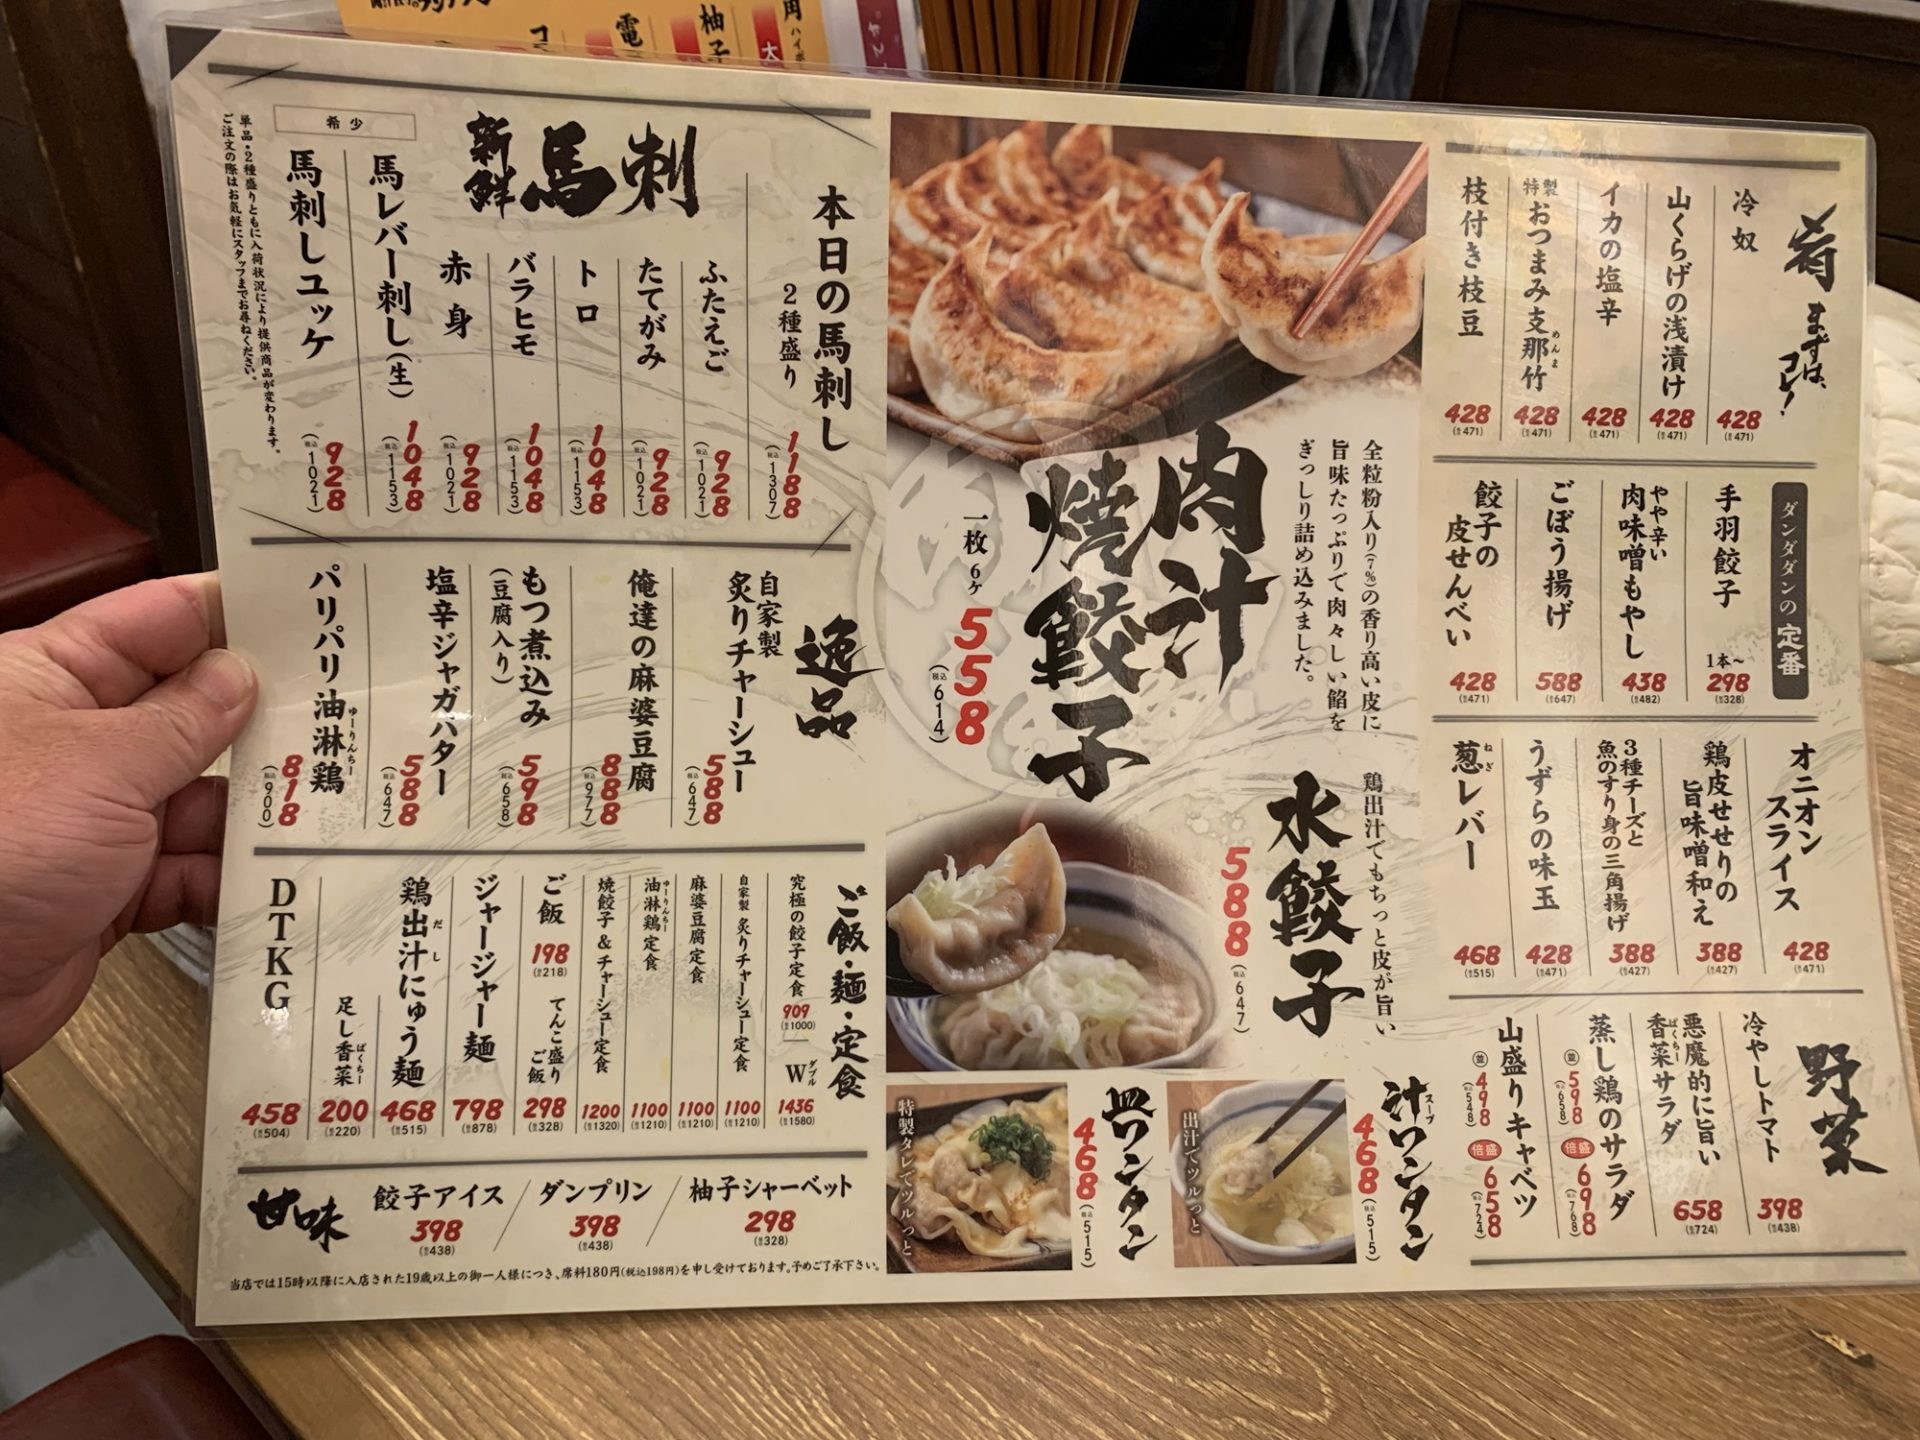 肴 まずは、コレ!
冷奴 428 (税込471)
山くらげの浅漬け 428 (税込471)
イカの塩辛 428 (税込471)
特製おつまみ支那竹 めんま 428 (税込471)
枝付き枝豆 428 (税込471)
ダンダダンの定番
手羽餃子 1本〜 298 (税込328)
やや辛い 肉味噌もやし 438 (税込482)
ごぼう揚げ 588 (税込647)
餃子の皮せんべい 428 (税込471)
オニオンスライス 428 (税込471)
鶏皮せせりの旨味噌和え 388 (税込427)
3種チーズと魚のすり身の三角揚げ 388 (税込427)
うずらの味玉 428 (税込471)
葱レバー ねぎ 468 (税込515)
野菜
冷やしトマト 398 (税込438)
悪魔的に旨い香菜サラダ ぱくちー 658 (税込724)
蒸し鶏のサラダ 並 598 (税込658) 倍盛 698 (税込768)
山盛りキャベツ 並 498 (税込548) 倍盛 658 (税込724)
肉汁焼餃子
全粒粉入り(7%)の香り高い皮に
旨味たっぷりで肉々しい餡を
ぎっしり詰め込みました。
一枚 6ヶ 558 (税込614)
水餃子
鶏出汁でもちっと皮が旨い
588 (税込647)
汁ワンタン スープ 468 (税込515)
出汁でツルっと
皿ワンタン 468 (税込515)
特製タレでツルっと
新鮮 馬刺
本日の馬刺し 2種盛り 1188 (税込1307)
ふたえご 928 (税込1021)
たてがみ 928 (税込1021)
トロ 1048 (税込1153)
バラヒモ 1048 (税込1153)
赤身 928 (税込1021)
希少
馬レバー刺し(生) 1048 (税込1153)
馬刺しユッケ 928 (税込1021)
単品・2種盛りともに入荷状況により提供商品が変わります。
ご注文の際はお気軽にスタッフまでお尋ねください。
逸品
自家製 炙りチャーシュー 588 (税込647)
俺達の麻婆豆腐 888 (税込977)
もつ煮込み (豆腐入り) 598 (税込658)
塩辛ジャガバター 588 (税込647)
パリパリ油淋鶏 ゆーりんちー 818 (税込900)
ご飯・麺・定食
究極の餃子定食 909 (税込1000) W ダブル 1436 (税込1580)
自家製 炙りチャーシュー定食 1100 (税込1210)
麻婆豆腐定食 1100 (税込1210)
油淋鶏定食 ゆーりんちー 1100 (税込1210)
焼餃子&チャーシュー定食 1200 (税込1320)
ご飯 198 (税込218) てんこ盛りご飯 298 (税込328)
ジャージャー麺 798 (税込878)
鶏出汁にゅう麺 だし 468 (税込515)
足し香菜 ぱくちー 200 (税込220)
DTKG 458 (税込504)
甘味
餃子アイス 398 (税込438)
ダンプリン 398 (税込438)
柚子シャーベット 298 (税込328)
当店では15時以降に入店された19歳以上の御一人様につき、席料180円(税込198円)を申し受けております。予めご了承下さい。
電
柚子
角ハイボ
大